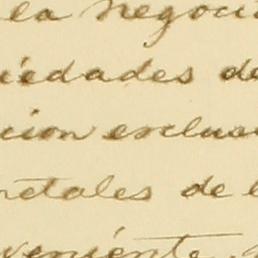 la negoci
iedades de
cion esclus
netales de
veniente